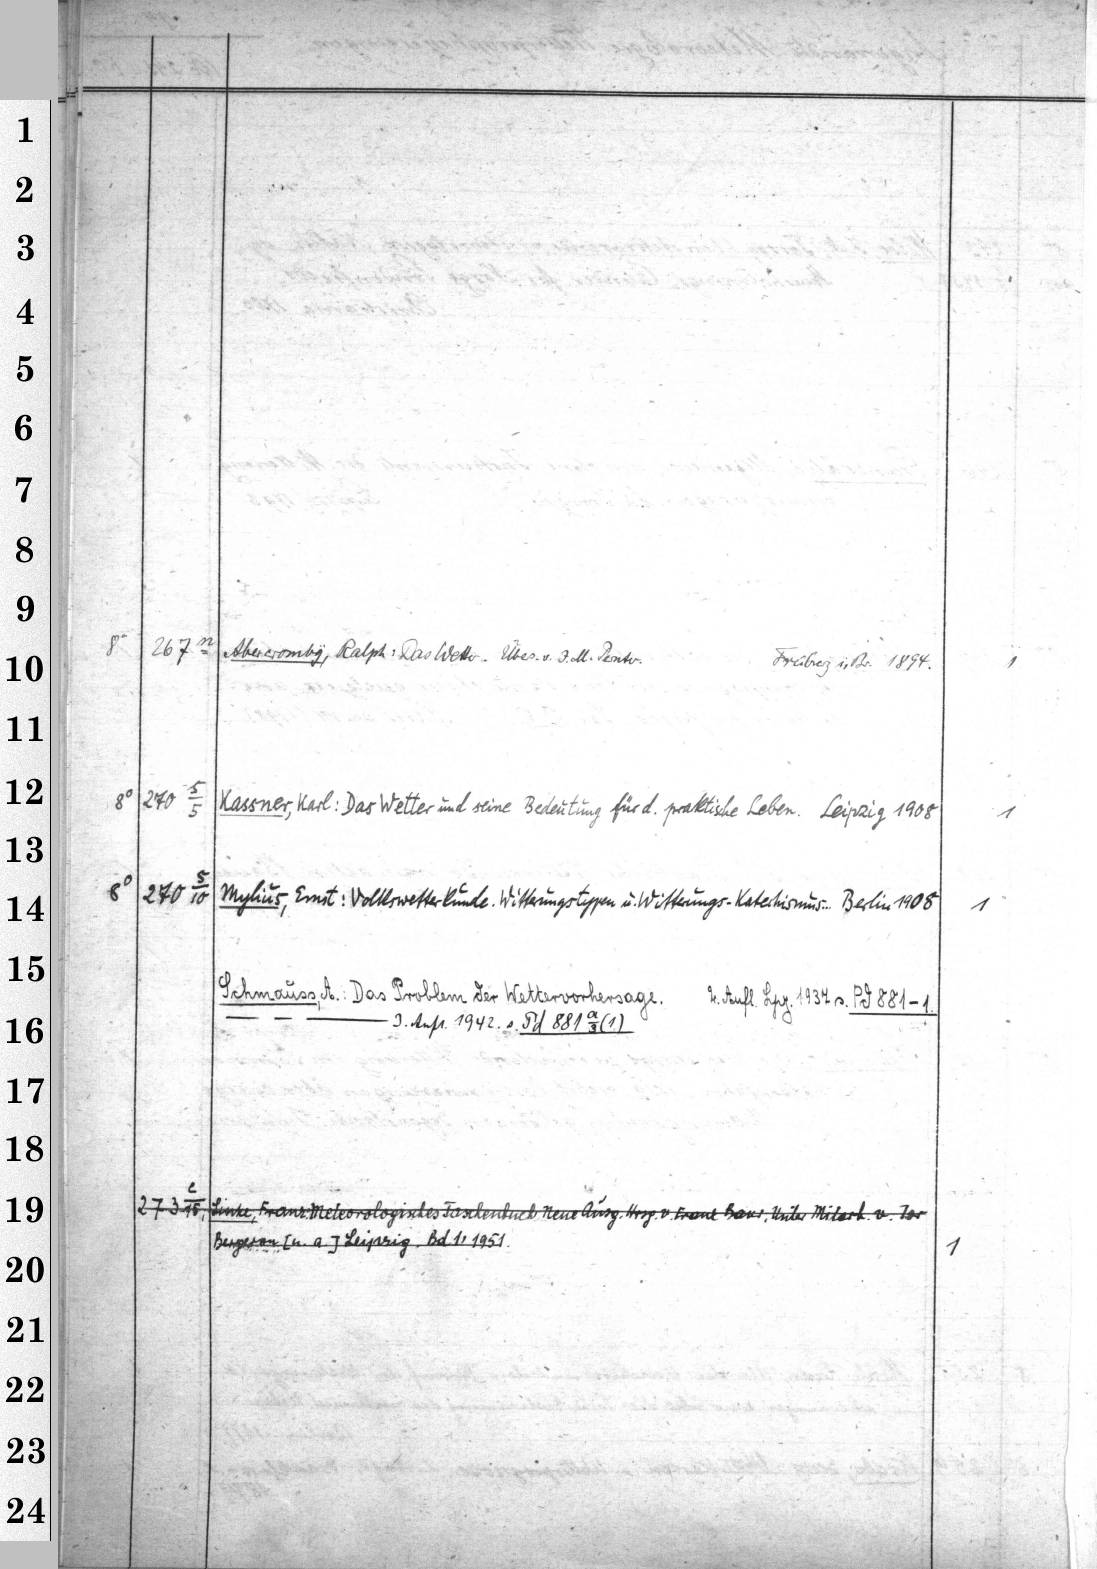 1
2
3
4
5
6
7
8
9
8° 267 n Abercromby, Ralph: Das Wetter. Übers. v. J. M. Pernter. Freiburg i. Br. 1894. 1
10
11
12
8° 270 5/5 Kassner, Karl: Das Wetter und seine Bedeutung für d. praktische Leben. Leipzig 1908 1
13
8° 270 5/10 Mylius, Ernst: Volkswetterkunde. Witterungstypen u. Witterungs-Katechismus. Berlin 1908 1
14
15
Schmauss, A.: Das Problem der Wettervorhersage. 2. Aufl. Lpz. 1937 s. Pd 881-1.
16
— — — 3. Aufl. 1942. s. Pd 881 a/3 (1)
17
18
19
273 e/15, Linke, Franz: Meteorologisches Taschenbuch Neue Ausg. Hrsg. v. Franz Baur, Unter Mitarb. v. Tor
Bergeron [u. a.] Leipzig. Bd 1, 1951. 1
20
21
22
23
24